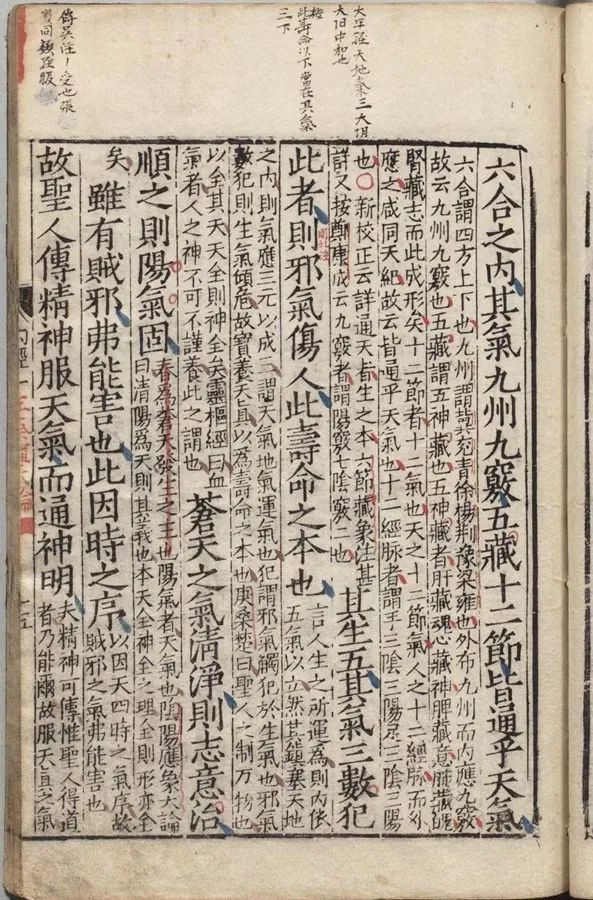 大平經天地氣三大阴
大阳中和也
按
此壽命以下當在其氣
三下
傳吳注
受也張
六合之内其氣九州九竅五藏十二節皆通乎天氣
六合謂四方上下也九州謂冀兗青徐楊荊豫梁雍也外布九州而内應九竅
故云九州九竅也五藏謂五神藏也五神藏者肝藏魂心藏神脾藏意肺藏魄
腎藏志而此成形矣十二節者十二氣也天之十二節氣人之十二經脉而外
應之咸同天紀故云皆通乎天氣也十二經脉者謂手三陰三陽足三陰三陽
也〇新校正云詳通天者生之本六節藏象注甚
詳又按鄭康成云九竅者謂陽竅七陰竅二也
其生五其氣三數犯
此者則邪氣傷人此壽命之本也
言人生之所運為則内依
五氣以立然其鎮塞天地
之内則氣應三元以成三謂天氣地氣運氣也犯謂邪氣觸犯於生氣也邪氣
數犯則生氣傾危故寶養天真以為壽命之本也庚桑楚曰聖人之制万物也
以全其天天全則神全矣靈樞經曰血
氣者人之神不可不謹養此之謂也
蒼天之氣清淨則志意治
順之則陽氣固
春為蒼天發生之主也陽氣者天氣也陰陽應象大論
曰清陽為天則其義也本天全神全之理全則形亦全
矣
雖有賊邪弗能害也此因時之序
以因天四時之氣序故
賊邪之氣弗能害也
故聖人傳精神服天氣而通神明
夫精神可傳惟聖人得道
者乃能爾故服天真之氣